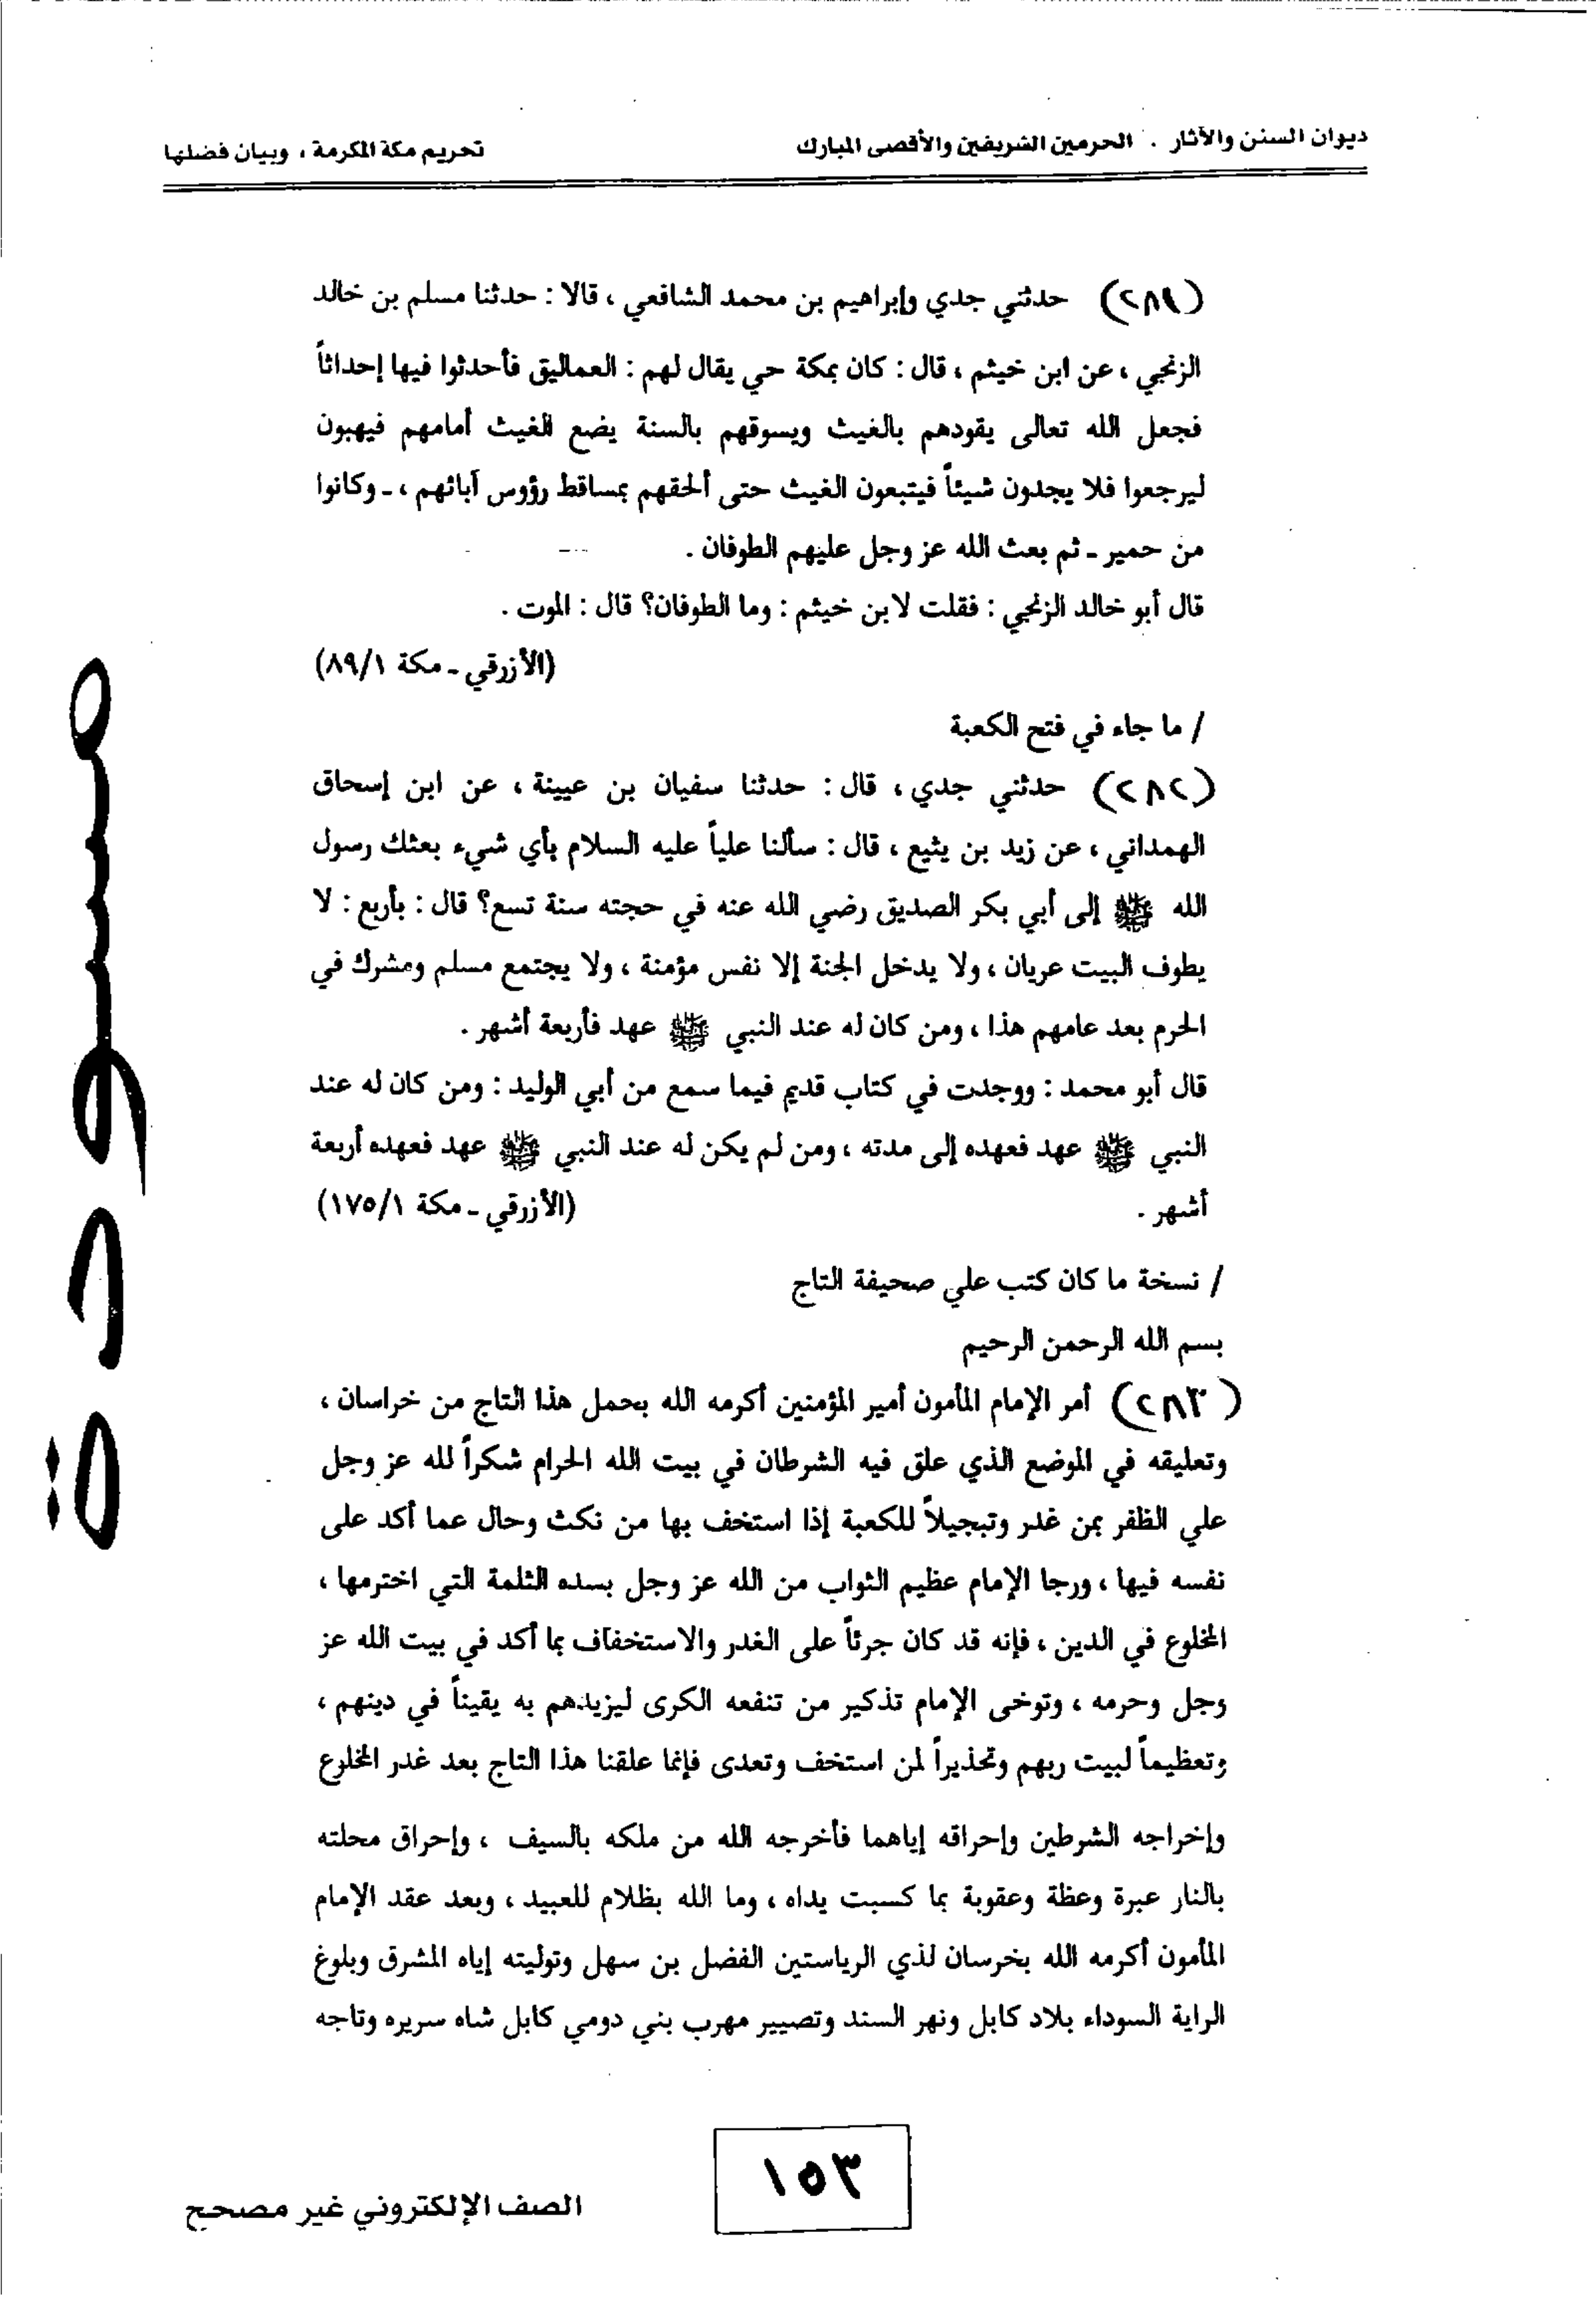 ديوان السنن والآثار . الحرمين الشريفين والأقصى المبارك
تحريم مكة المكرمة ، وبيان فضلها
(٢٨١) حدثني جدي وإبراهيم بن محمد الشافعي ، قالا : حدثنا مسلم بن خالد
الزنجي ، عن ابن خيثم ، قال : كان بمكة حي يقال لهم : العماليق فأحدثوا فيها إحداثاً
فجعل الله تعالى يقودهم بالغيث ويسوقهم بالسنة يضع الغيث أمامهم فيهبون
ليرجعوا فلا يجدون شيئاً فيتبعون الغيث حتى ألحقهم بمساقط رؤوس آبائهم ، ـ وكانوا
من حمير ـ ثم بعث الله عز وجل عليهم الطوفان .
قال أبو خالد الزنجي : فقلت لابن خيثم : وما الطوفان؟ قال : الموت .
(الأزرقي ـ مكة ٨٩/١)
/ ما جاء في فتح الكعبة
(٢٨٢) حدثني جدي ، قال : حدثنا سفيان بن عيينة ، عن ابن إسحاق
الهمداني ، عن زيد بن يثيع ، قال : سألنا علياً عليه السلام بأي شيء بعثك رسول
الله ﷺ إلى أبي بكر الصديق رضي الله عنه في حجته سنة تسع؟ قال : بأربع : لا
يطوف البيت عريان ، ولا يدخل الجنة إلا نفس مؤمنة ، ولا يجتمع مسلم ومشرك في
الحرم بعد عامهم هذا ، ومن كان له عند النبي ﷺ عهد فأربعة أشهر .
قال أبو محمد : ووجدت في كتاب قديم فيما سمع من أبي الوليد : ومن كان له عند
النبي ﷺ عهد فعهده إلى مدته ، ومن لم يكن له عند النبي ﷺ عهد فعهده أربعة
أشهر . (الأزرقي ـ مكة ١٧٥/١)
/ نسخة ما كان كتب علي صحيفة التاج
بسم الله الرحمن الرحيم
(٢٨٣) أمر الإمام المأمون أمير المؤمنين أكرمه الله بحمل هذا التاج من خراسان ،
وتعليقه في الموضع الذي علق فيه الشرطان في بيت الله الحرام شكراً لله عز وجل
علي الظفر بمن غدر وتبجيلاً للكعبة إذا استخف بها من نكث وحال عما أكد على
نفسه فيها ، ورجا الإمام عظيم الثواب من الله عز وجل بسده الثلمة التي اخترمها ،
المخلوع في الدين ، فإنه قد كان جرئاً على الغدر والاستخفاف بما أكد في بيت الله عز
وجل وحرمه ، وتوخى الإمام تذكير من تنفعه الكرى ليزيدهم به يقيناً في دينهم ،
وتعظيماً لبيت ربهم وتحذيراً لمن استخف وتعدى فإنما علقنا هذا التاج بعد غدر المخلوع
وإخراجه الشرطين وإحراقه إياهما فأخرجه الله من ملكه بالسيف ، وإحراق محلته
بالنار عبرة وعظة وعقوبة بما كسبت يداه ، وما الله بظلام للعبيد ، وبعد عقد الإمام
المأمون أكرمه الله بخرسان لذي الرياستين الفضل بن سهل وتوليته إياه المشرق وبلوغ
الراية السوداء بلاد كابل ونهر السند وتصيير مهرب بني دومي كابل شاه سريره وتاجه
١٥٣
الصف الإلكتروني غير مصحح
مسودة